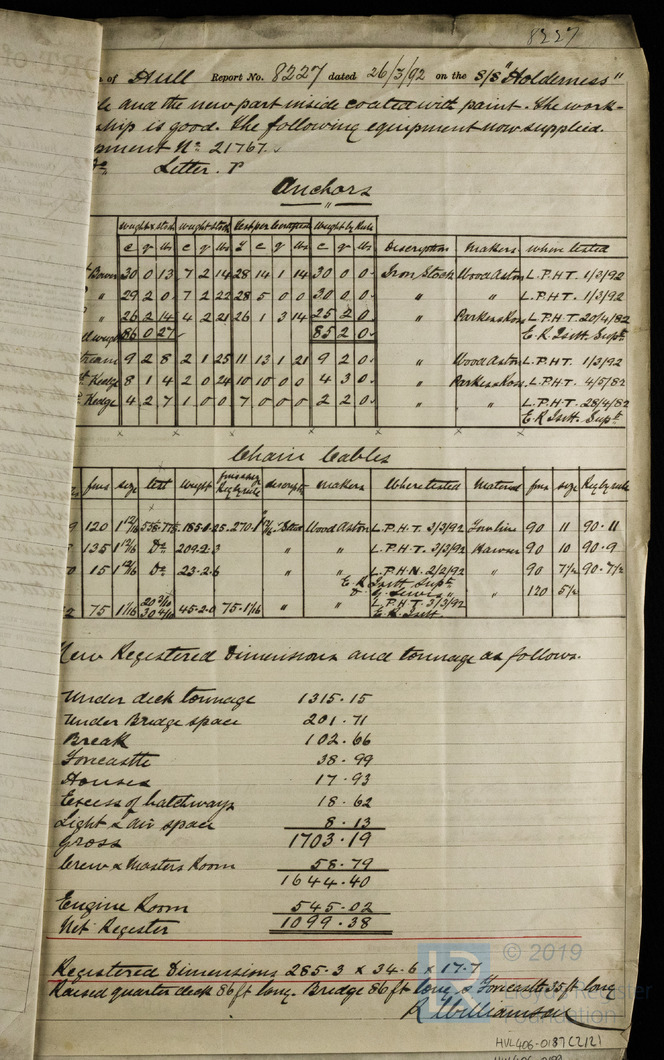 8227
of Hull Report No. 8227 dated 26/3/92 on the S/S "Holderness"
and the new part inside coated with paint. The work-
ship is good. The following equipment now supplied.
pment No. 21767.
Letter. P
Anchors
Weight & Stock Weight Stock Test per Certificate Weight by Rule
c q lbs c q lbs T c q lbs c q lbs Description Makers Where tested
Bower 30 0 13 7 2 14 28 14 1 14 30 0 0 Iron Stock Wood Aston L.P.H.T. 1/3/92
" 29 2 0 7 2 22 28 5 0 0 30 0 0 " " L.P.H.T. 1/3/92
" 26 2 14 4 2 21 26 1 3 14 25 2 0 " Parkes & Ross L.P.H.T. 20/4/82
weight 86 0 27 85 2 0 E.R. Isitt. Supt.
tream 9 2 8 2 1 25 11 13 1 21 9 2 0 " Wood Aston L.P.H.T. 1/3/92
Kedge 8 1 4 2 0 24 10 10 0 0 4 3 0 " Parkes & Ross L.P.H.T. 4/5/82
Kedge 4 2 7 1 0 0 7 0 0 0 2 2 0 " " L.P.H.T. 28/4/82
E.R. Isitt. Supt.
Chain Cables
fms size test weight fms & size Req by rule descriptn makers Where tested Material fms size Req by rule
120 1 12/16 185.1.25 270. Wood Aston L.P.H.T. 3/3/92 Towline 90 11 90.11
135 1 12/16 Do. 209.2.3 " " L.P.H.T. 3/3/92 Hawser 90 10 90.9
15 1 12/16 Do. 23.2.6 " " L.P.H.N. 2/2/92 " 90 7½ 90.7½
E.R. Isitt Supt.
G. Lewis " " 120 5½
75 1 1/16 45.2.0 75.1 1/16 " " L.P.H.T. 3/3/92
E.R. Isitt.
New Registered Dimensions and tonnage as follows.
Under deck tonnage 1315.15
Under Bridge space 201.71
Break 102.66
Forecastle 38.99
Houses 17.93
Excess of hatchways 18.62
Light & air space 8.13
Gross 1703.19
Crew & Masters Room 58.79
1644.40
Engine Room 545.02
Net Register 1099.38
Registered Dimensions 285.3 x 34.6 x 17.7
Raised quarter deck 86 ft long. Bridge 86 ft long & Forecastle 35 ft long
R Williamson
© 2019
LR
Lloyd's Register
Foundation
HVL406-0187(2/2)